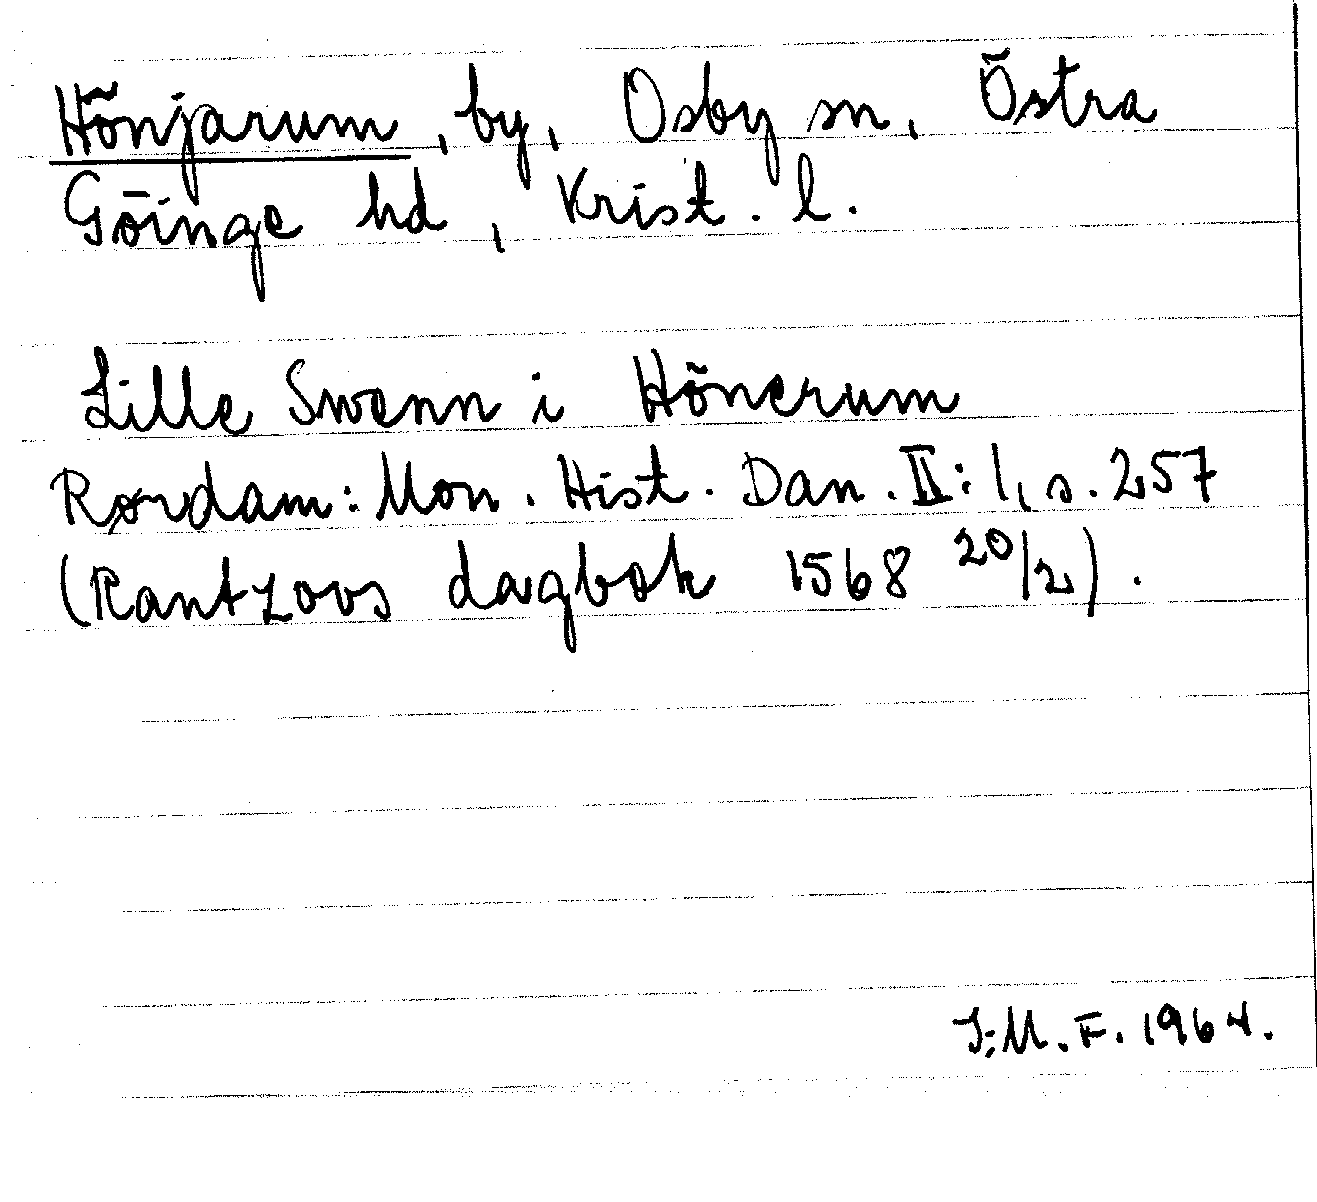 Hönjarum, by, Osby sn, Östra
Göinge hd, Krist. l.
Lille Swenn i Hönerum
Rørdam: Mon. Hist. Dan. II: 1, s. 257
(Rantzovs dagbok 1568 20/2).
J.M.F. 1964.